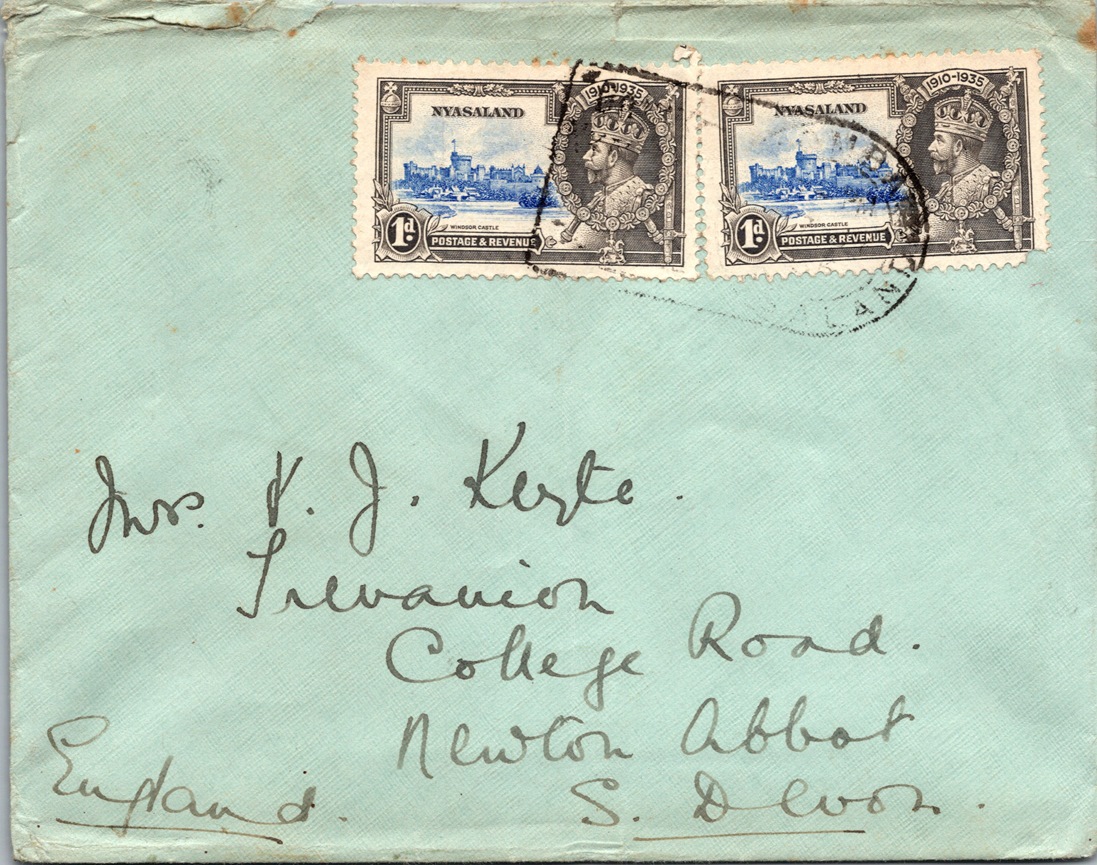 NYASALAND
1910-1935
WINDSOR CASTLE
1d.
POSTAGE & REVENUE
NYASALAND
1910-1935
WINDSOR CASTLE
1d.
POSTAGE & REVENUE
Mrs. V. J. Keyte.
Trevanion
College Road.
Newton Abbot
S. Devon.
England.